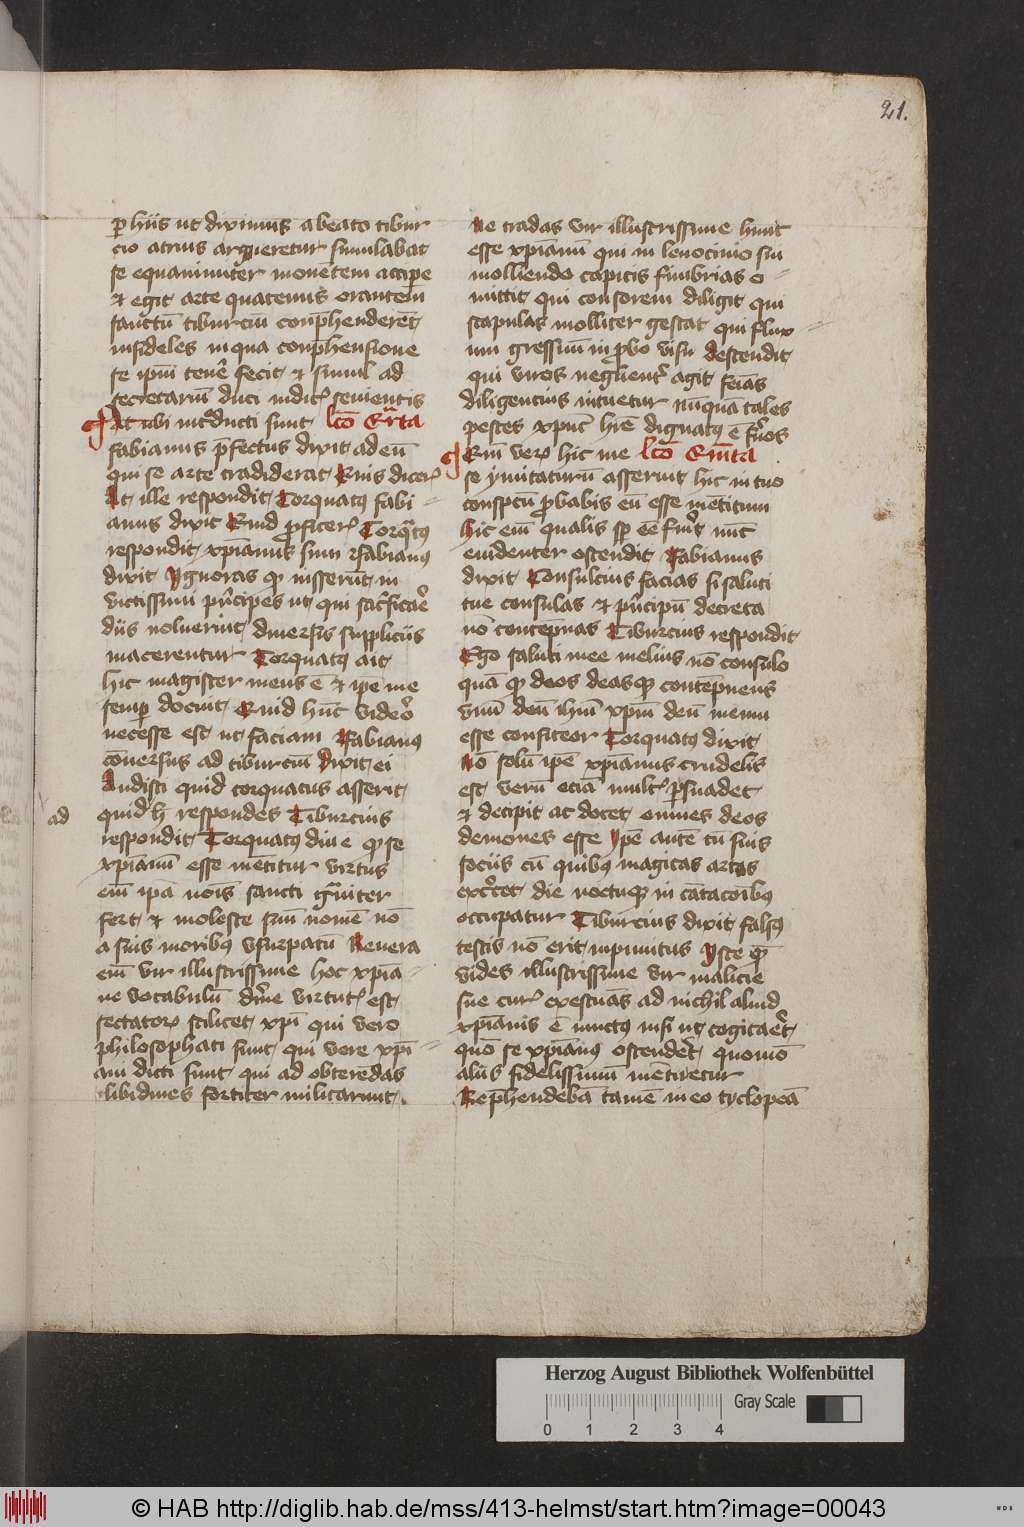 21.
p hiis ut diximus a beato tibur
cio atrius argueretur simulabat
se equanimiter monetem accipe
et egit arte quatenus orantem
sanctū tiburciū conphenderēt
infideles in qua conphensione
se ipm̄ tenē fecit et simul ad
secretariū duci iudiċ sevientis
At ubi int͛ducti sunt lcō q͛rta
fabianus p̄fectus dixit ad eū
qui se arte tradiderat Quis diceꝭ
At ille respondit Torquatꝰ fabi=
anus dixit Quid ꝓfiteꝭ Torq͛tꝰ
respondit xp̄ianus sum Fabianꝰ
dixit Ignoras qꝫ iusserūt in
victissimi pͥncipes ut qui sac͛ficaē
diis noluerint diversis suppliciis
macerentur Torquatꝰ ait
hic magister meus ē et ipē me
semp docuit Quid hūc videō
necesse est ut faciam Fabianꝰ
cōversus ad tiburciū dixit ei
Audisti quid torquatus asserit
ad
quid h̄ respondes Tiburcius
respondit Torquatꝰ diu ē qꝫ se
xp̄ianū esse mētitur virtus
em̄ ipā nōis sancti g͛viter
fert et moleste suū nomē nō
a suis moribꝰ usurpatū Revera
em̄ vir illustrissime hoc xp̄ia=
ne vocabulū divīe virtutꝭ est
sectatoꝝ scilicet xp̄i qui vero
philosophati sunt qui vere xp̄i=
ani dicti sunt qui ad obterēdas
libidines fortiter militarunt.
Ne tradas vir illustrissime hunc
esse xp̄ianū qui in lenocinio sui
molliendo capitis fimbrias o=
mittit qui consorem diligit qui
scapulas molliter gestat qui flux=
um gressum in ꝓvo visu descendit
qui viros negliēnt͛ agit feīas
diligencius intuetur nūquā tales
pestes xp̄us hr̄e dignatꝰ ē s͛vos
Cum vero hic me lcō Quīta
se ymitaturū asserunt hic in tuo
conspc̄u ꝓbabis eū esse mētitum
hic em̄ qualis sꝑ eē fuīt nūc
evidenter ostendit Fabianus
dixit Consulcius facias si saluti
tue consulas et pͥncipū decreta
nō contēpnas Tiburcius respondit
Ego saluti mee melius nō consulo
quā qꝫ deos deasqꝫ contēpnens
vnū deū ihm̄ xp̄m deū meum
esse confiteor Torquatꝰ dixit
Nō solū ipē xp̄ianus crudelis
est verū eciā multꝭ ꝑsuadet
et decipit ac docet omnes deos
demones esse Ipē autē cū suis
sociis cū quibꝰ magicas artes
exc͛cet die noctuqꝫ in cātacōibꝰ
occupatur Tiburcius dixit falsꝰ
testis nō erit inpunitus Iste qꝫ
vides illustrissime vir malicie
sue cuꝝ exestuās ad nichil aliud
xp̄ianis ē iunctꝰ nisi ut cogitaēt
quō se xp̄ianꝰ ostendēt quomō
aliis fidelissimū metiretur
Rephendebā tamē in eo cyclopeā
Herzog August Bibliothek Wolfenbüttel
Gray Scale
0 1 2 3 4
© HAB http://diglib.hab.de/mss/413-helmst/start.htm?image=00043
WDB